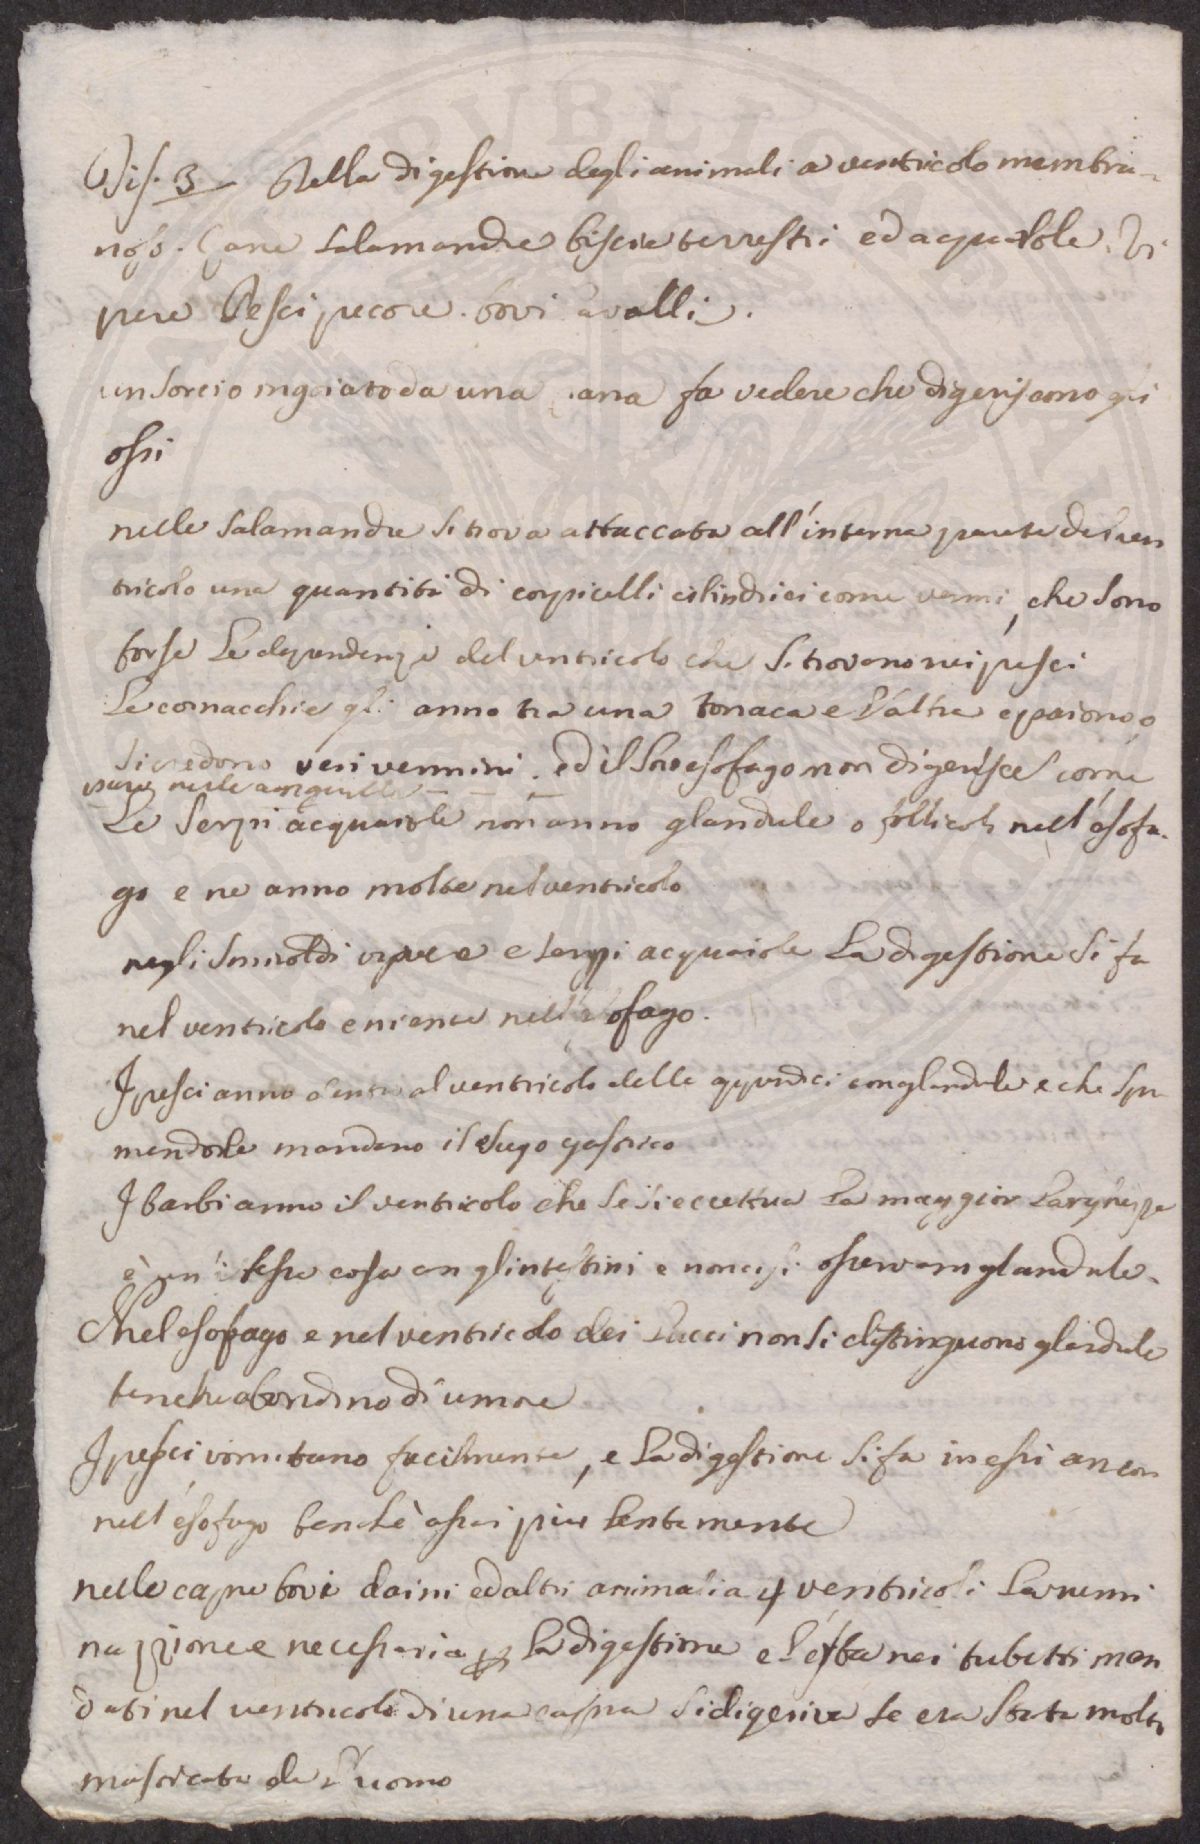 Dis. 3 Della digestione degli animali a venticolo membra-
noso. Rane salamandre biscie terrestri ed aquaiole. Vi
pere Pesci pecore. bovi cavalli.
un sorcio ingoiato da una rana fa vedere che digeriscono gli
ossi
nelle Salamandre si trova attaccata all'interna parete del ven
tricolo una quantità di corpicelli cilindrici come vermi, che sono
forse le dependenze del ventricolo che si trovano nei pesci
Le cornacchie gli anno tra una tonaca e l'altra e paiono, o
si vedono veri vermini. ed il loro esofago non digerisce come
pure nelle anguille
Le Serpi acquaiole non anno glandule o follicoli nell'esofa-
go e ne anno molte nel ventricolo
negli Smiroldi vipere e serpi acquaiole La digestione si fa
nel ventricolo e niente nell'esofago.
I pesci anno dentro al ventricolo delle appendici con glandule e che spre
mendole mandano il sugo gastrico
I barbi anno il ventricolo che se si eccettua la maggior larghezza
è un'istessa cosa con gl'intestini e non ci si osservan glandule.
Nel esofago e nel ventricolo dei Lucci non si distinguono glandule
benche abondino di umore
I pesci vomitano facilmente, e la digestione si fa in essi ancor
nell'esofago benchè assai piu lentamente
nelle capre bovi daini ed altri animali a 4 ventricoli La rumi
nazzione e necessaria per la digestione e l'erba nei tubetti man
dati nel ventricolo di una capra si digeriva se era stata molto
masticata da l'uomo